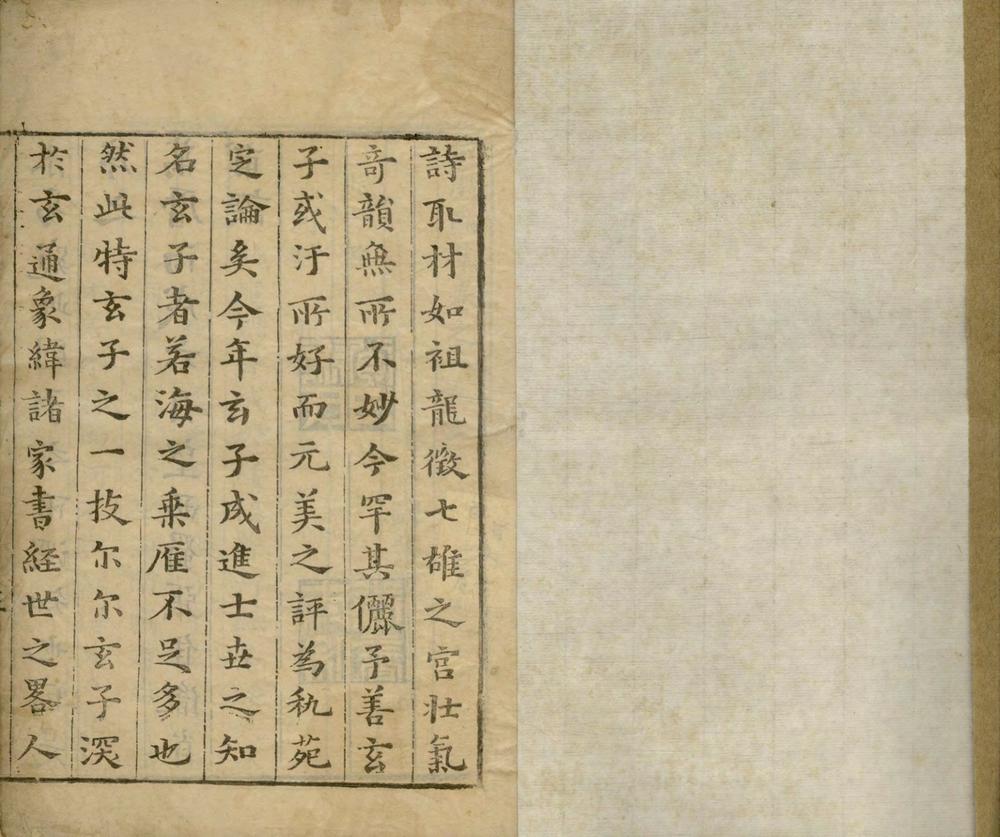 詩取材如祖龍徵七雄之宮壯氣
竒韻無所不妙今罕其儷予善玄
子或汙所好而元美之評為秇苑
定論矣今年玄子成進士丗之知
名玄子者若海之乗雁不足多也
然此特玄子之一技尔尔玄子深
於玄通象緯諸家書経世之畧人